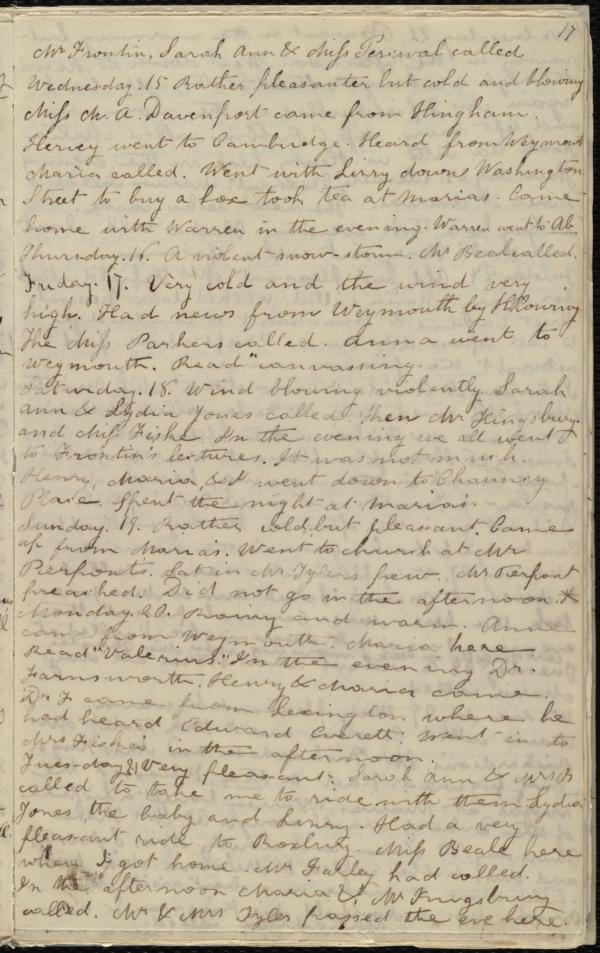 17
Mr Frontin, Sarah Ann & Miss Percival called
Wednesday. 15 Rather pleasanter but cold and blowing
Miss M. A. Davenport came from Hingham.
Hervey went to Cambridge. Heard from Weymouth
Maria called. Went with Lizzy down Washington
Street to buy a box took tea at Marias. Came
home with Warren in the evening. Warren went to Ab
Thursday. 16. A violent snow-storm. Mr Beal called.
Friday. 17. Very cold and the wind very
high. Had news from Weymouth by
The Miss Parkers called. Anna went to
Weymouth. Read "canvassing.
Saturday. 18. Wind blowing violently Sarah
Ann & Lydia Jones called then Mr Kingsbury
and Miss Fiske In the evening we all went
to Frontin's lectures. It was not much.
Henry, Maria, & I went down to Chauncy
Place. Spent the night at Maria's.
Sunday. 19. Rather cold, but pleasant. Came
up from Maria's. Went to church at Mr
Pierponts. Sat in Mr Tylers pew. Mr Pierpont
preached. Did not go in the afternoon.
Monday. 20. Rainy and warm. Anna
came from Weymouth. Maria here
Read "Valerius." In the evening Dr.
Farnsworth, Henry & Maria came.
Dr F came from Lexington where he
had heard Edward Everett. Went in to
Mrs Fishes in the afternoon.
Tuesday 21 Very pleasant. Sarah Ann & Mrs
called to take me to ride with them Lydia
Jones, the baby and Linny. Had a very
pleasant ride to Roxbury. Miss Beale here
when I got home. Mr Farley had called.
In the afternoon Maria & Mr Kingsbury
called. Mr & Mrs Tyler passed the eve here.